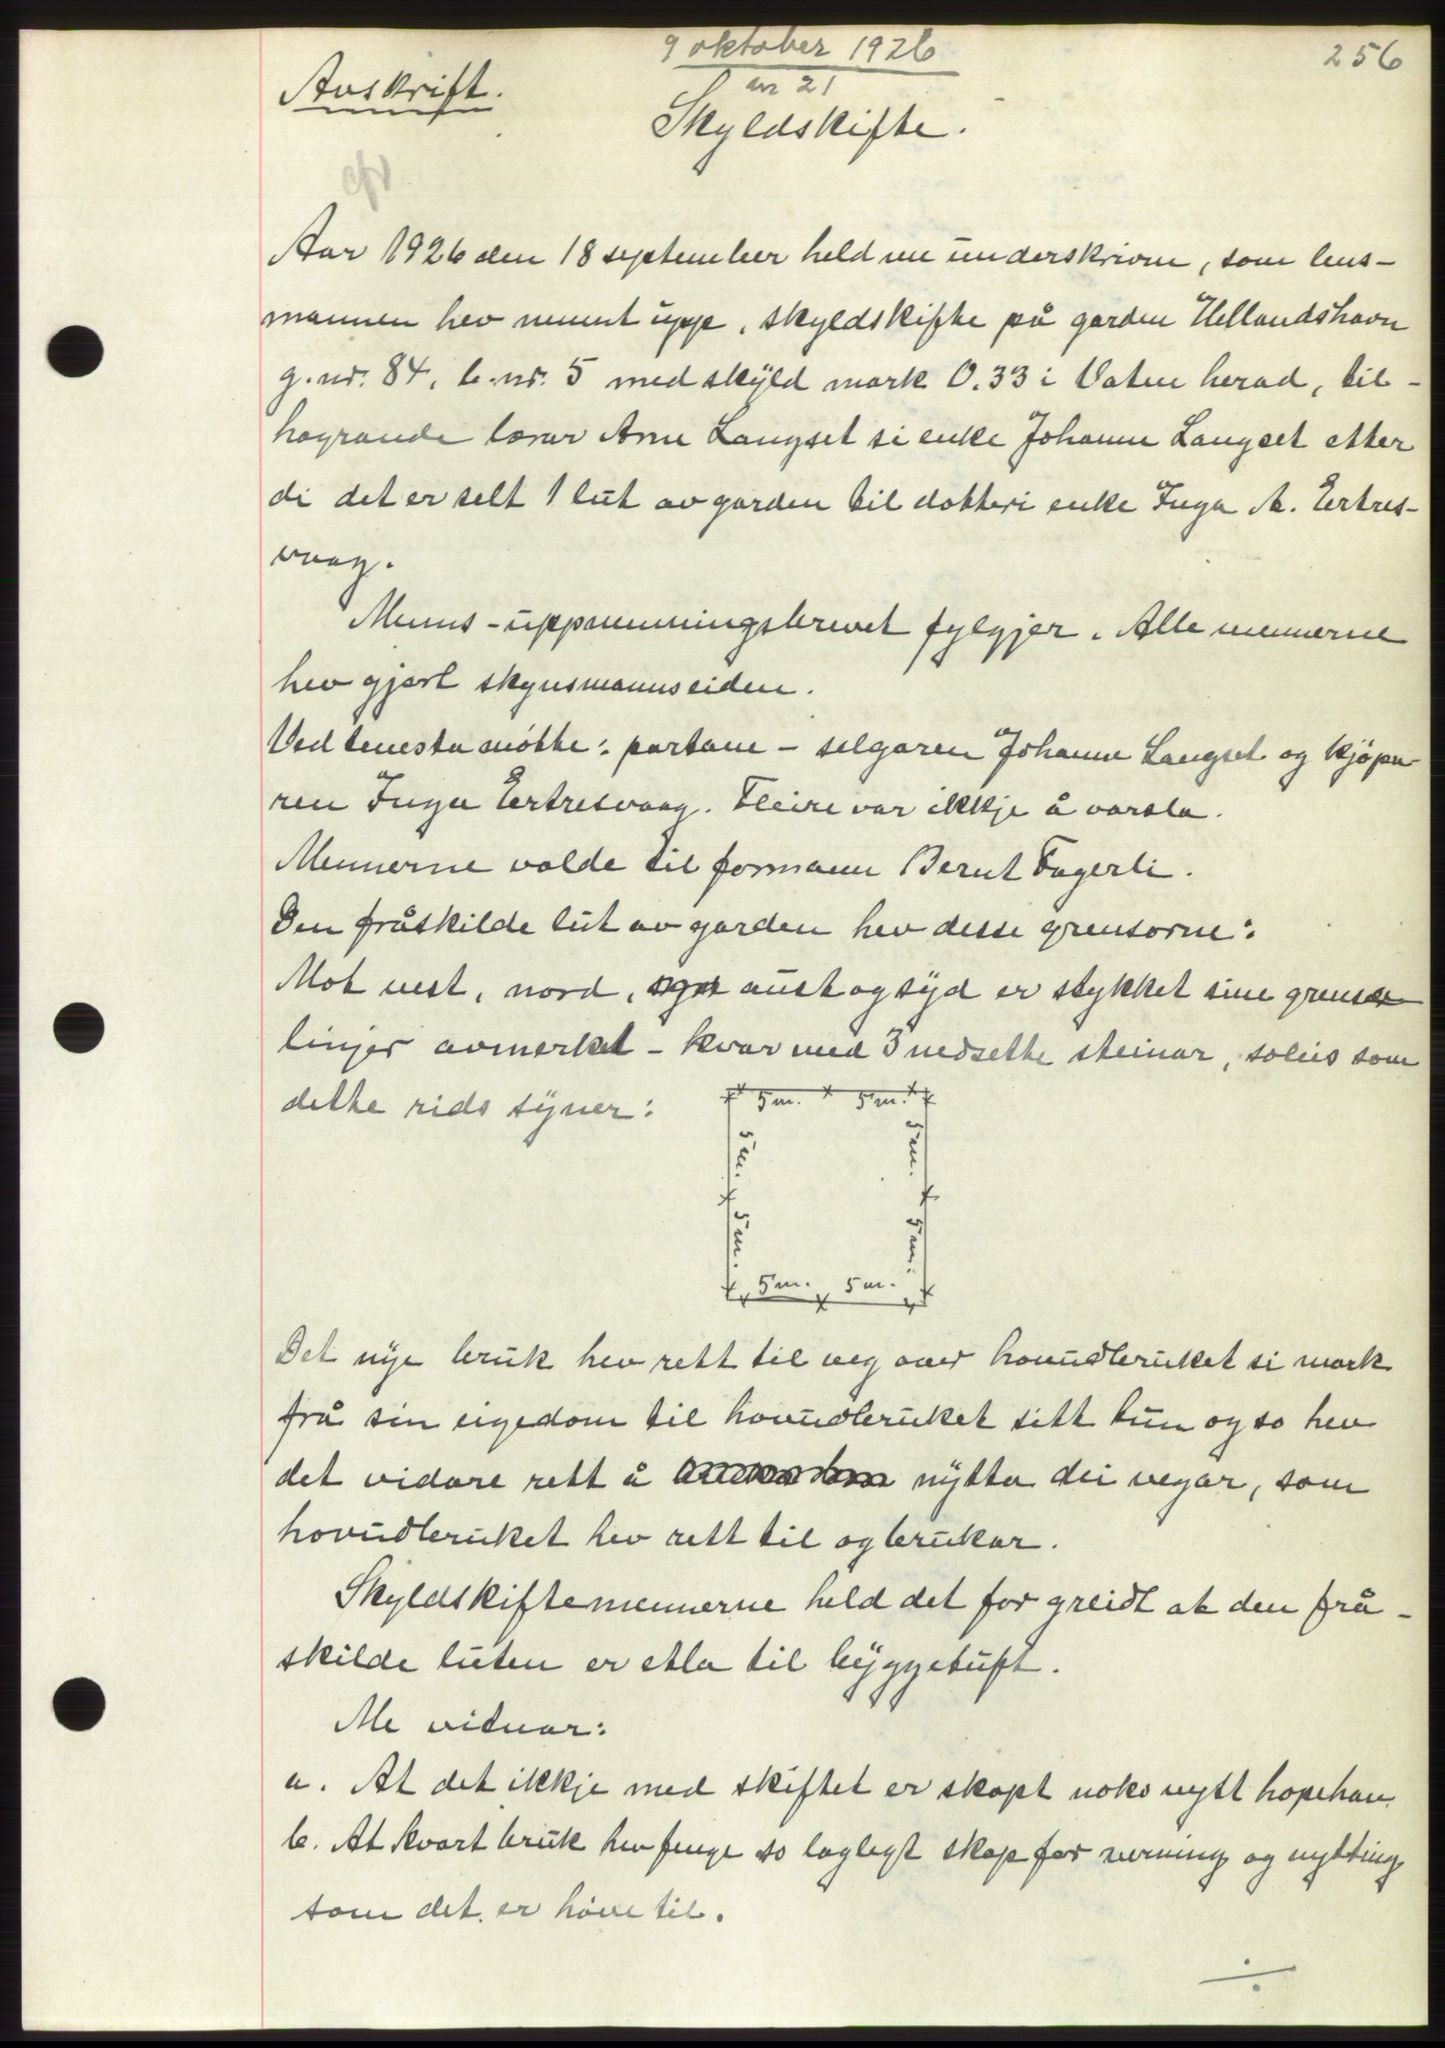 9 oktober 1926
256
Avskrift.
nr 21
Skyldskifte.
Aar 1926 den 18 september held me underskrivne, som lens-
mannen hev nemnt upp, skyldskifte på garden Hellandshavn
g. nr. 84, b. nr. 5 med skyld mark 0.33 i Vatne herad, til-
høyrande lærar Arne Langset si enke Johanne Langset etter
di det er selt 1 lut av garden til dotteri enke Inga A. Eertres-
vaag.
Menns-uppnemningsbrevet fylgjer. Alle mennerne
hev gjort skynsmannseiden.
Ved tenesta møtte: partane - selgaren Johanne Langset og kjøpa-
ren Inga Eertresvaag. Fleire var ikkje å varsla.
Mennerne valde til formann Bernt Fagerli.
Den fråskilde lut av garden hev desse grensorne:
Mot vest, nord, aust og syd er stykket sine grense
linjer avmerket - kvar med 3 nedsette steinar, soleis som
dette rids syner:
5 m. 5 m.
5 m. 5 m.
5 m. 5 m.
5 m. 5 m.
Det nye bruk hev rett til veg over hovudbruket si mark
frå sin eigedom til hovudbruket sitt tun og so hev
det vidare rett å nytta dei vegar, som
hovudbruket hev rett til og brukar.
Skyldskiftemennerne held det for greidt at den frå-
skilde luten er etla til byggetuft.
Me vitnar:
a. At det ikkje med skiftet er skapt noko nytt hopehav
b. At kvart bruk hev fenge so laglegt skap for verning og nytting
som det er høve til.
÷